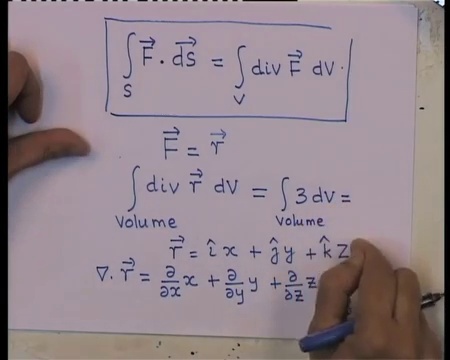 ∫_S F⃗ . ds⃗ = ∫_V div F⃗ dV.
F⃗ = r⃗
∫_Volume div r⃗ dV = ∫_Volume 3 dv =
r⃗ = î x + ĵ y + k̂ Z
∇. r⃗ = ∂/∂x x + ∂/∂y y + ∂/∂z z